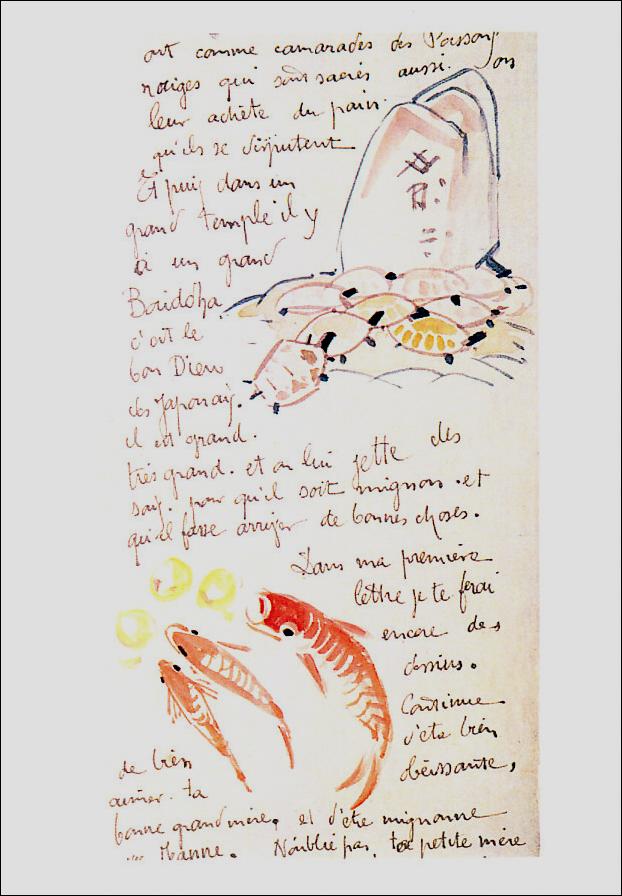 ont comme camarades des Poissons
rouges qui sont sacrés aussi. on
leur achète du pain.
qu'ils se disputent
Et puis dans un
grand temple il y
a un grand
Bouddha
c'est le
bon Dieu
des Japonais.
il est grand.
très grand. et on lui jette des
sous. pour qu'il soit mignon. et
qu'il fasse arriver de bonnes choses.
Dans ma première
lettre je te ferai
encore des
dessins.
Continue
d'etre bien
obéissante,
de bien
aimer. ta
bonne grand mère, et d'être mignonne
Jeanne. N'oublie pas, ta petite mère